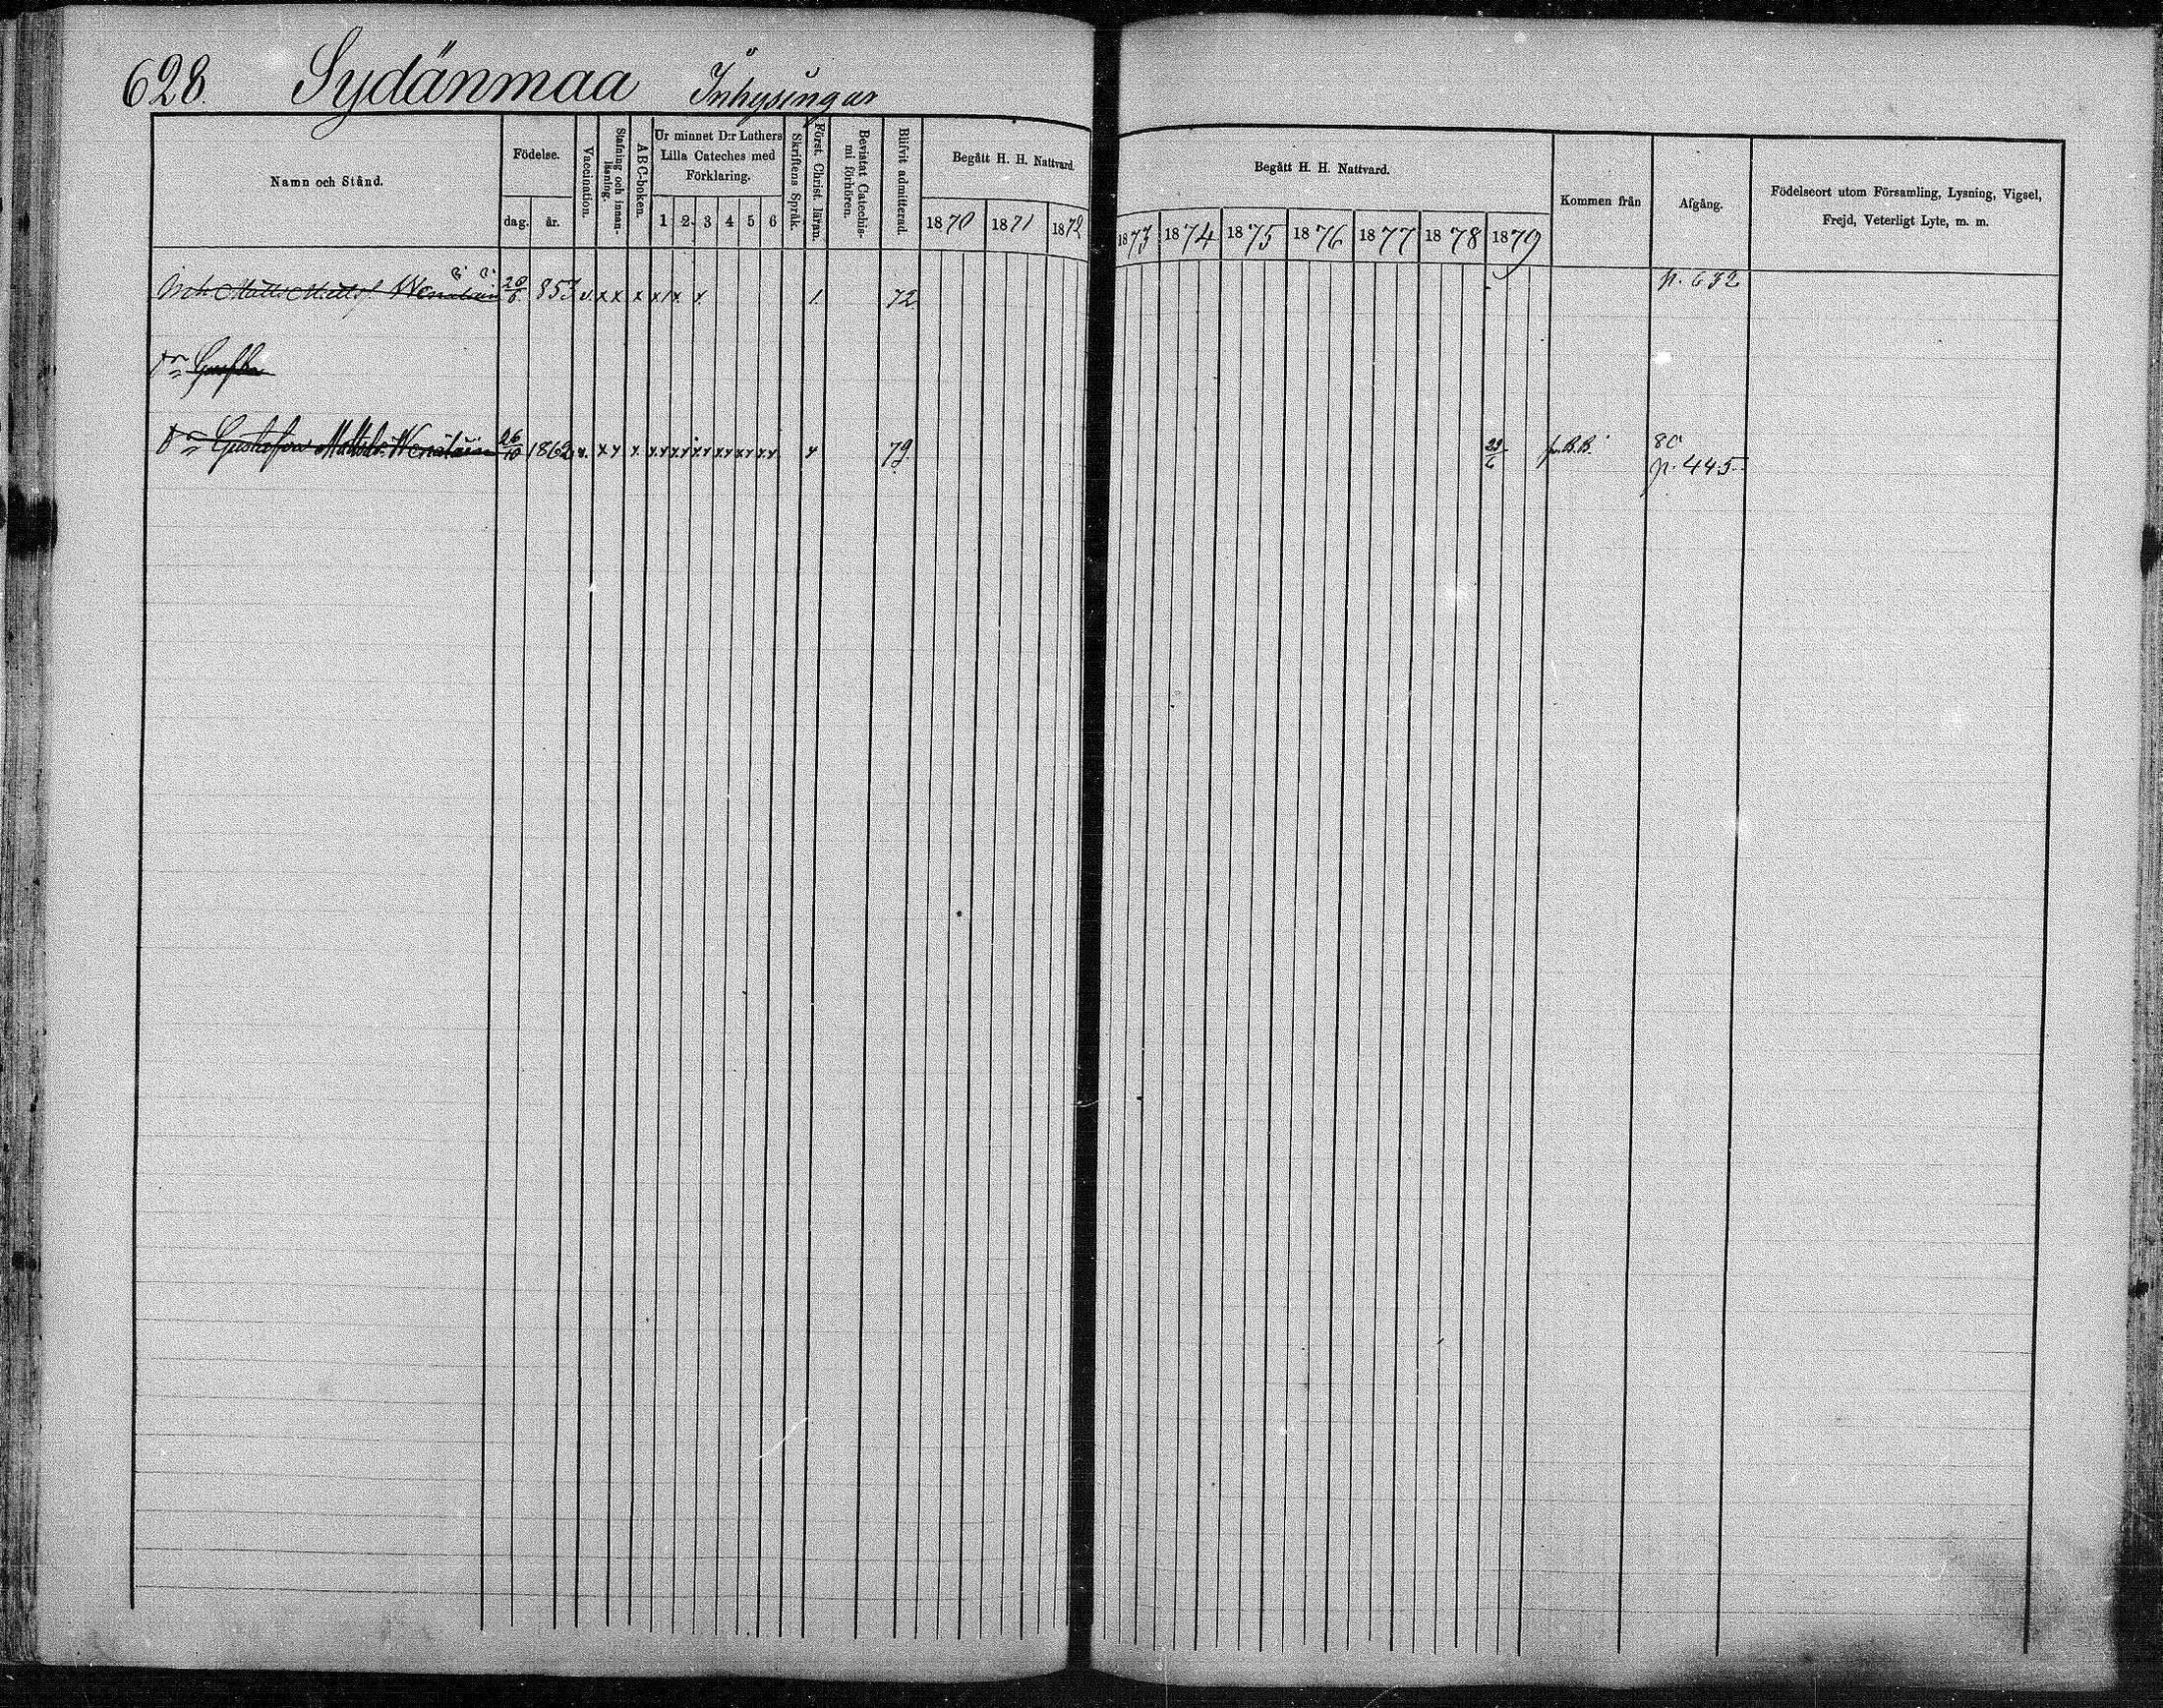 628. Sydänmaa Inhysingar
Namn och Stånd.
Födelse.
dag.
år.
Vaccination.
Stafning och innan-
läsning.
A B C-boken.
Ur minnet D:r Luthers
Lilla Cateches med
Förklaring.
1 2 3 4 5 6
Skriftens Språk.
Först. Christ. läran.
Bevistat Catechis-
mi förhören.
Blifvit admitterad.
Begått H. H. Nattvard.
1870 1871 1872
Begått H. H. Nattvard.
1873 1874 1875 1876 1877 1878 1879
Kommen från
Afgång.
Födelseort utom Församling, Lysning, Vigsel,
Frejd, Veterligt Lyte, m. m.
Matts Mattss. Wenäläin 28/6 853 v. x x x x 1 x x 1. 72 p. 632
Gustafva Mattsdr. Wenäläin 26/10 1862 v. x x x x x x x x x x x x x x x x 79. 22/6 fr. B.B. 80 p. 445